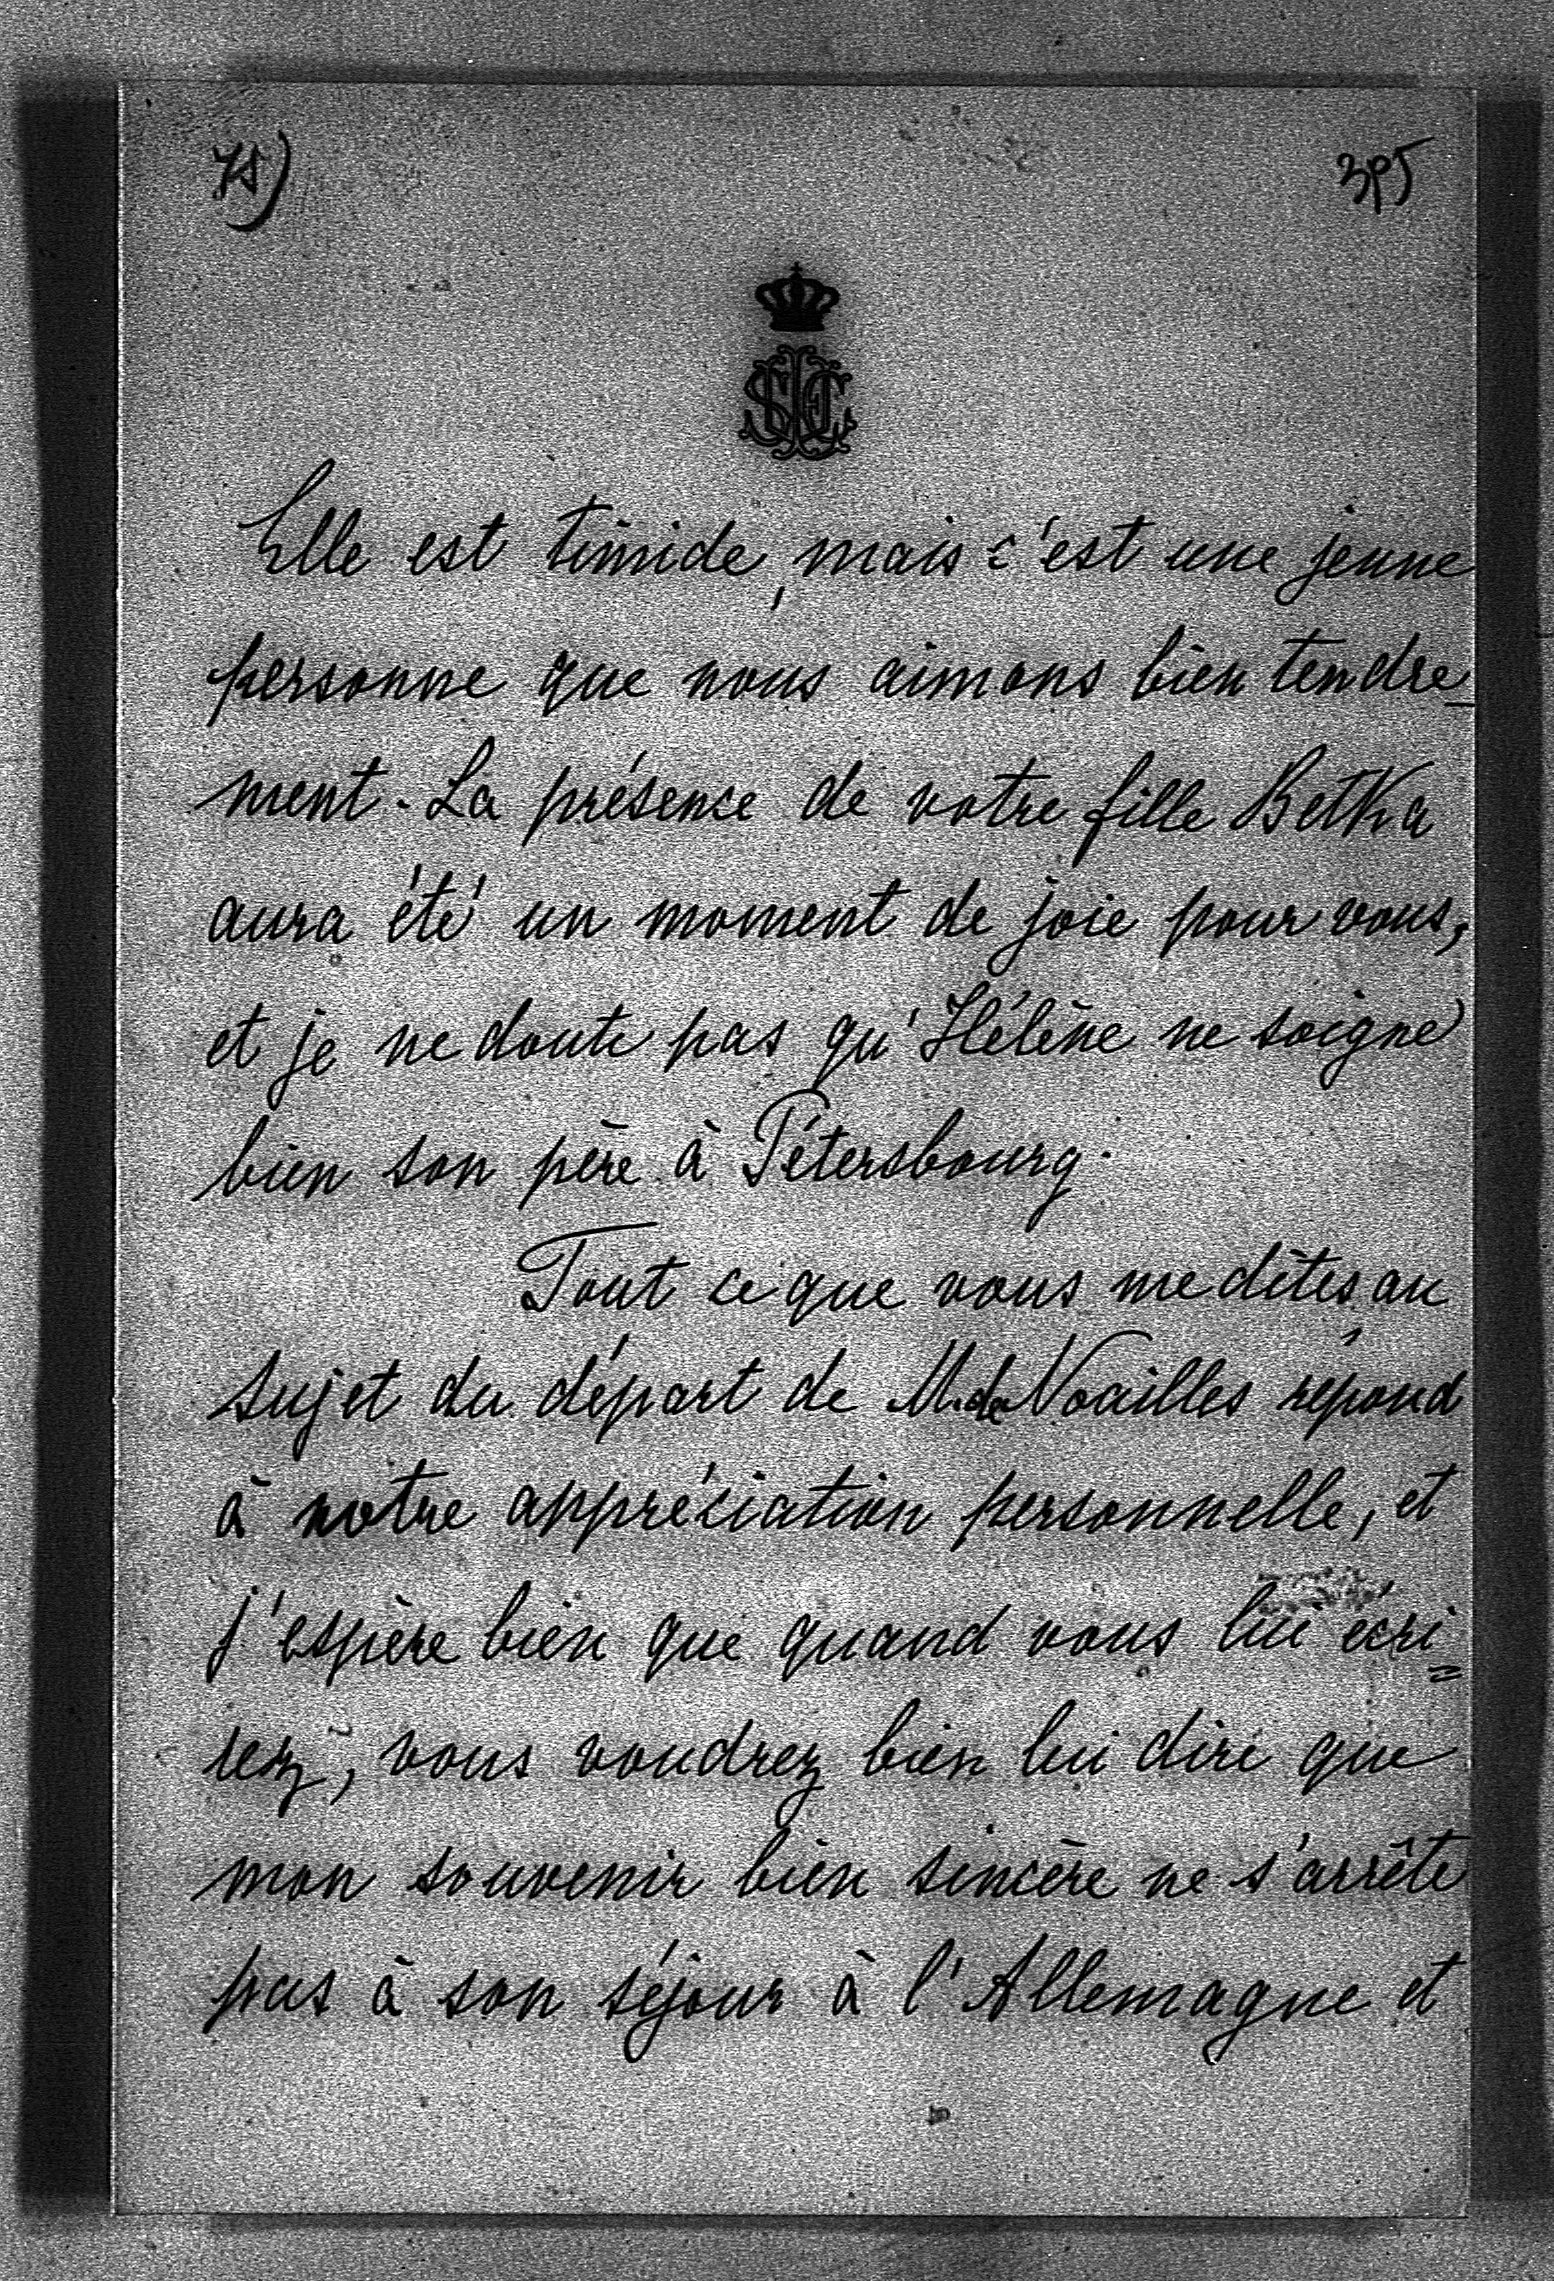 Elle est timide, mais c'est une jeune
personne que nous aimons bien tendre-
ment. La présence de votre fille Betka
aura été un moment de joie pour vous,
et je ne doute pas qu'Hélène ne soigne
bien son père à Pétersbourg.
Tout ce que vous me dites au
sujet du départ de M. de Noailles répond
à notre appréciation personnelle, et
j'espère bien que quand vous lui écri=
rez, vous voudrez bien lui dire que
mon souvenir bien sincère ne s'arrête
pas à son séjour à l'Allemagne et